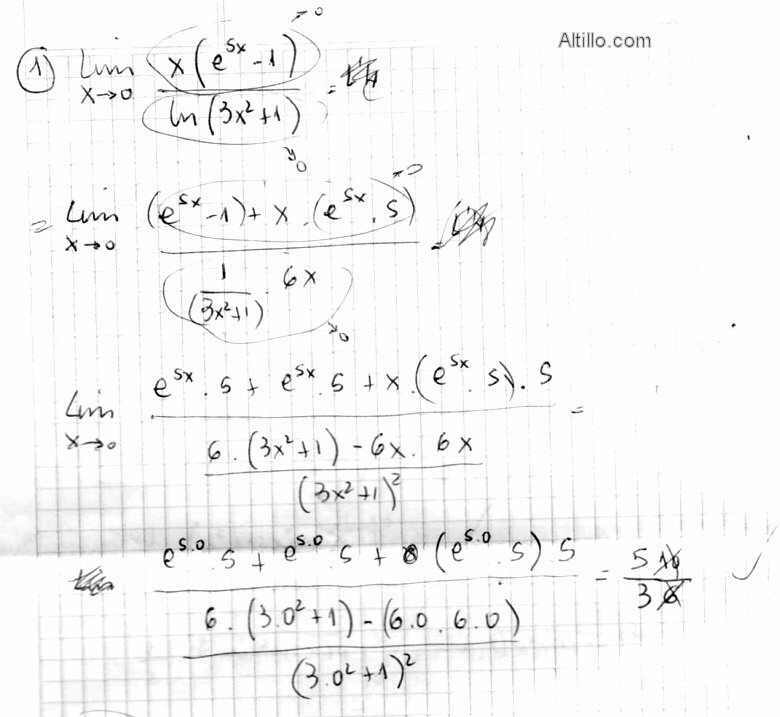 Altillo.com
① Lim x→0 x(e^5x - 1) →0 / ln(3x²+1) →0 =
= Lim x→0 (e^5x - 1) + x . (e^5x . 5) →0 / 1/(3x²+1) . 6x →0 =
Lim x→0 e^5x . 5 + e^5x . 5 + x . (e^5x . 5) . 5 / 6 . (3x²+1) - 6x . 6x / (3x²+1)² =
e^5.0 . 5 + e^5.0 . 5 + 0 (e^5.0 . 5) 5 / 6 . (3.0²+1) - (6.0 . 6.0) / (3.0²+1)² = 5 10 / 3 6 ✓